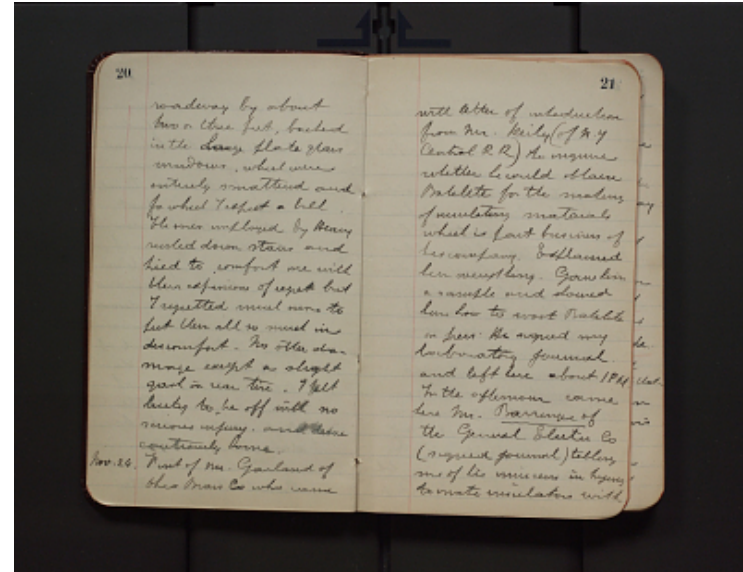 20
roadway by about
two or three feet, backed
in the large plate glass
windows, which were
entirely smattered and
for which I expect a bill.
The men employed by Henry
rushed down stairs and
tried to comfort me with
their expressions of regret but
I regretted much more to
put them all so much in
discomfort. No other dam-
mage except a slight
gash in rear tire. I felt
lucky to be off with no
serious injury. and drove
cautiously home.
Nov. 26. Visit of Mr. Garland of
Ohio Brass Co who came
21
with letter of introduction
from Mr. (of N.Y
Central R.R.) to inquire
whether he could obtain
Bakelite for the making
of insulating materials
which is part business of
his company. Explained
him everything. Gave him
a sample and showed
him how to work Bakelite
in press. He signed my
laboratory journal
and left here about 1 PM
In the afternoon came
here Mr. Barringer of
the General Electric Co
(signed journal) telling
me of his success in trying
to make insulators with